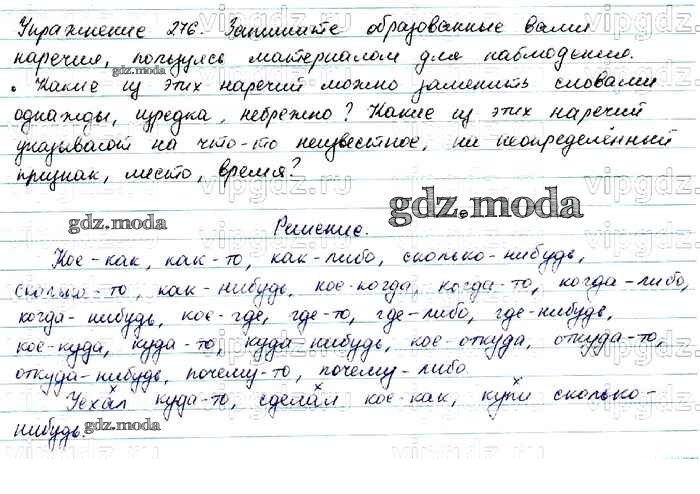 Упражнение 276. Запишите образованные вами
наречия, пользуясь материалом для наблюдения.
gdz.moda
• Какие из этих наречий можно заменить словами
однажды, изредка, небрежно? Какие из этих наречий
указывают на что-то неизвестное, на неопределённый
признак, место, время?
gdz.moda
gdz.moda
Решение.
Кое-как, как-то, как-либо, сколько-нибудь,
сколько-то, как-нибудь, кое-когда, когда-то, когда-либо,
когда-нибудь, кое-где, где-то, где-либо, где-нибудь,
кое-куда, куда-то, куда-нибудь, кое-откуда, откуда-то,
откуда-нибудь, почему-то, почему-либо.
Уехал куда-то, сделал кое-как, купи сколько-
нибудь.
gdz.moda